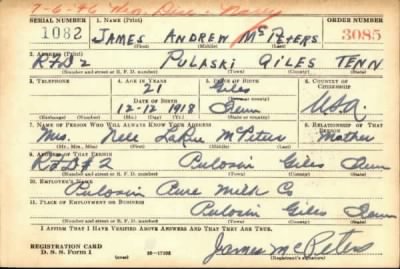 7-6-46
SERIAL NUMBER 1. NAME (Print) ORDER NUMBER
1082 JAMES ANDREW McPETERS 3085
(First) (Middle) (Last)
2. ADDRESS (Print)
RFD 2 PULASKI GILES TENN
(Number and street or R. F. D. number) (Town) (County) (State)
3. TELEPHONE 4. AGE IN YEARS 5. PLACE OF BIRTH 6. COUNTRY OF CITIZENSHIP
21 Giles
DATE OF BIRTH (Town or county)
12-12 1918 Tenn U.S.A.
(Exchange) (Number) (Mo.) (Day) (Yr.) (State or country)
7. NAME OF PERSON WHO WILL ALWAYS KNOW YOUR ADDRESS 8. RELATIONSHIP OF THAT PERSON
Mrs. McPeters Mother
(Mr., Mrs., Miss) (First) (Middle) (Last)
9. ADDRESS OF THAT PERSON
RFD # 2 Pulaski Giles Tenn
(Number and street or R. F. D. number) (Town) (County) (State)
10. EMPLOYER'S NAME
Pulaski Pure Milk Co
11. PLACE OF EMPLOYMENT OR BUSINESS
Pulaski Giles Tenn
(Number and street or R. F. D. number) (Town) (County) (State)
I AFFIRM THAT I HAVE VERIFIED ABOVE ANSWERS AND THAT THEY ARE TRUE.
REGISTRATION CARD
D. S. S. Form 1 (over) James McPeters
(Registrant's signature)